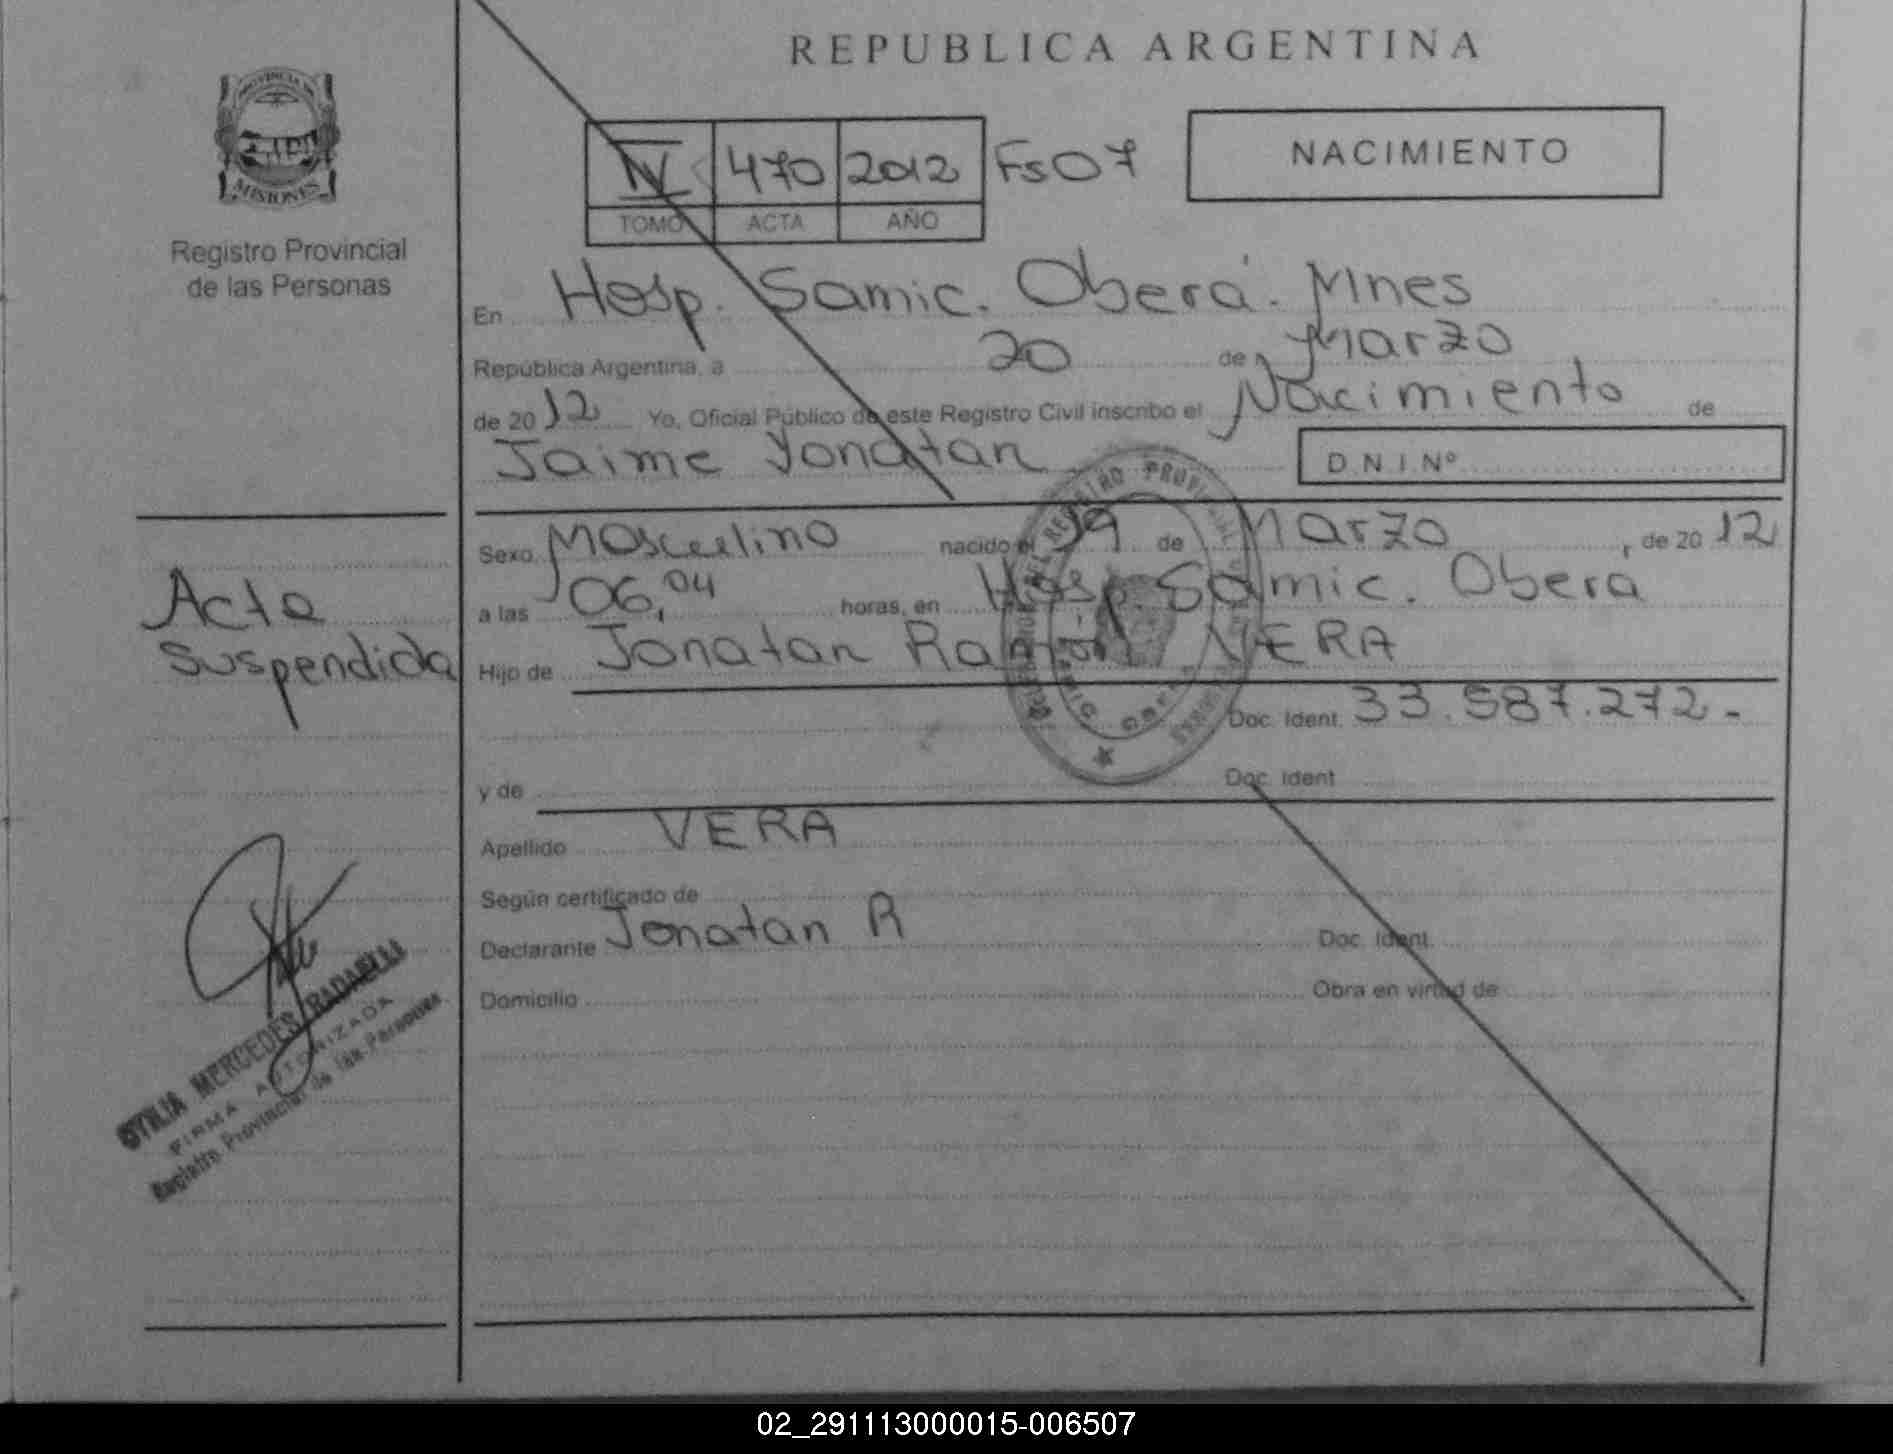 REPUBLICA ARGENTINA
PROVINCIA DE
MISIONES
Registro Provincial
de las Personas
IV 470 2012 Fs 07
TOMO ACTA AÑO
NACIMIENTO
En Hosp. Samic. Oberá. Mnes
República Argentina, a 20 de Marzo
de 2012 Yo, Oficial Público de este Registro Civil inscribo el Nacimiento de
Jaime Yonatan D.N.I.Nº
Sexo Masculino nacido el 19 de Marzo, de 2012
a las 06,04 horas, en Hosp. Samic. Oberá
Hijo de Jonatan Ramón VERA
Doc. Ident. 33.587.272-
y de Doc. Ident
Apellido VERA
Según certificado de
Declarante Jonatan R Doc. Ident.
Domicilio Obra en virtud de
Acta
Suspendida
MERCEDES
FIRMA AUTORIZADA
Registro Provincial de las Personas
REGISTRO PROVINCIAL
02_291113000015-006507